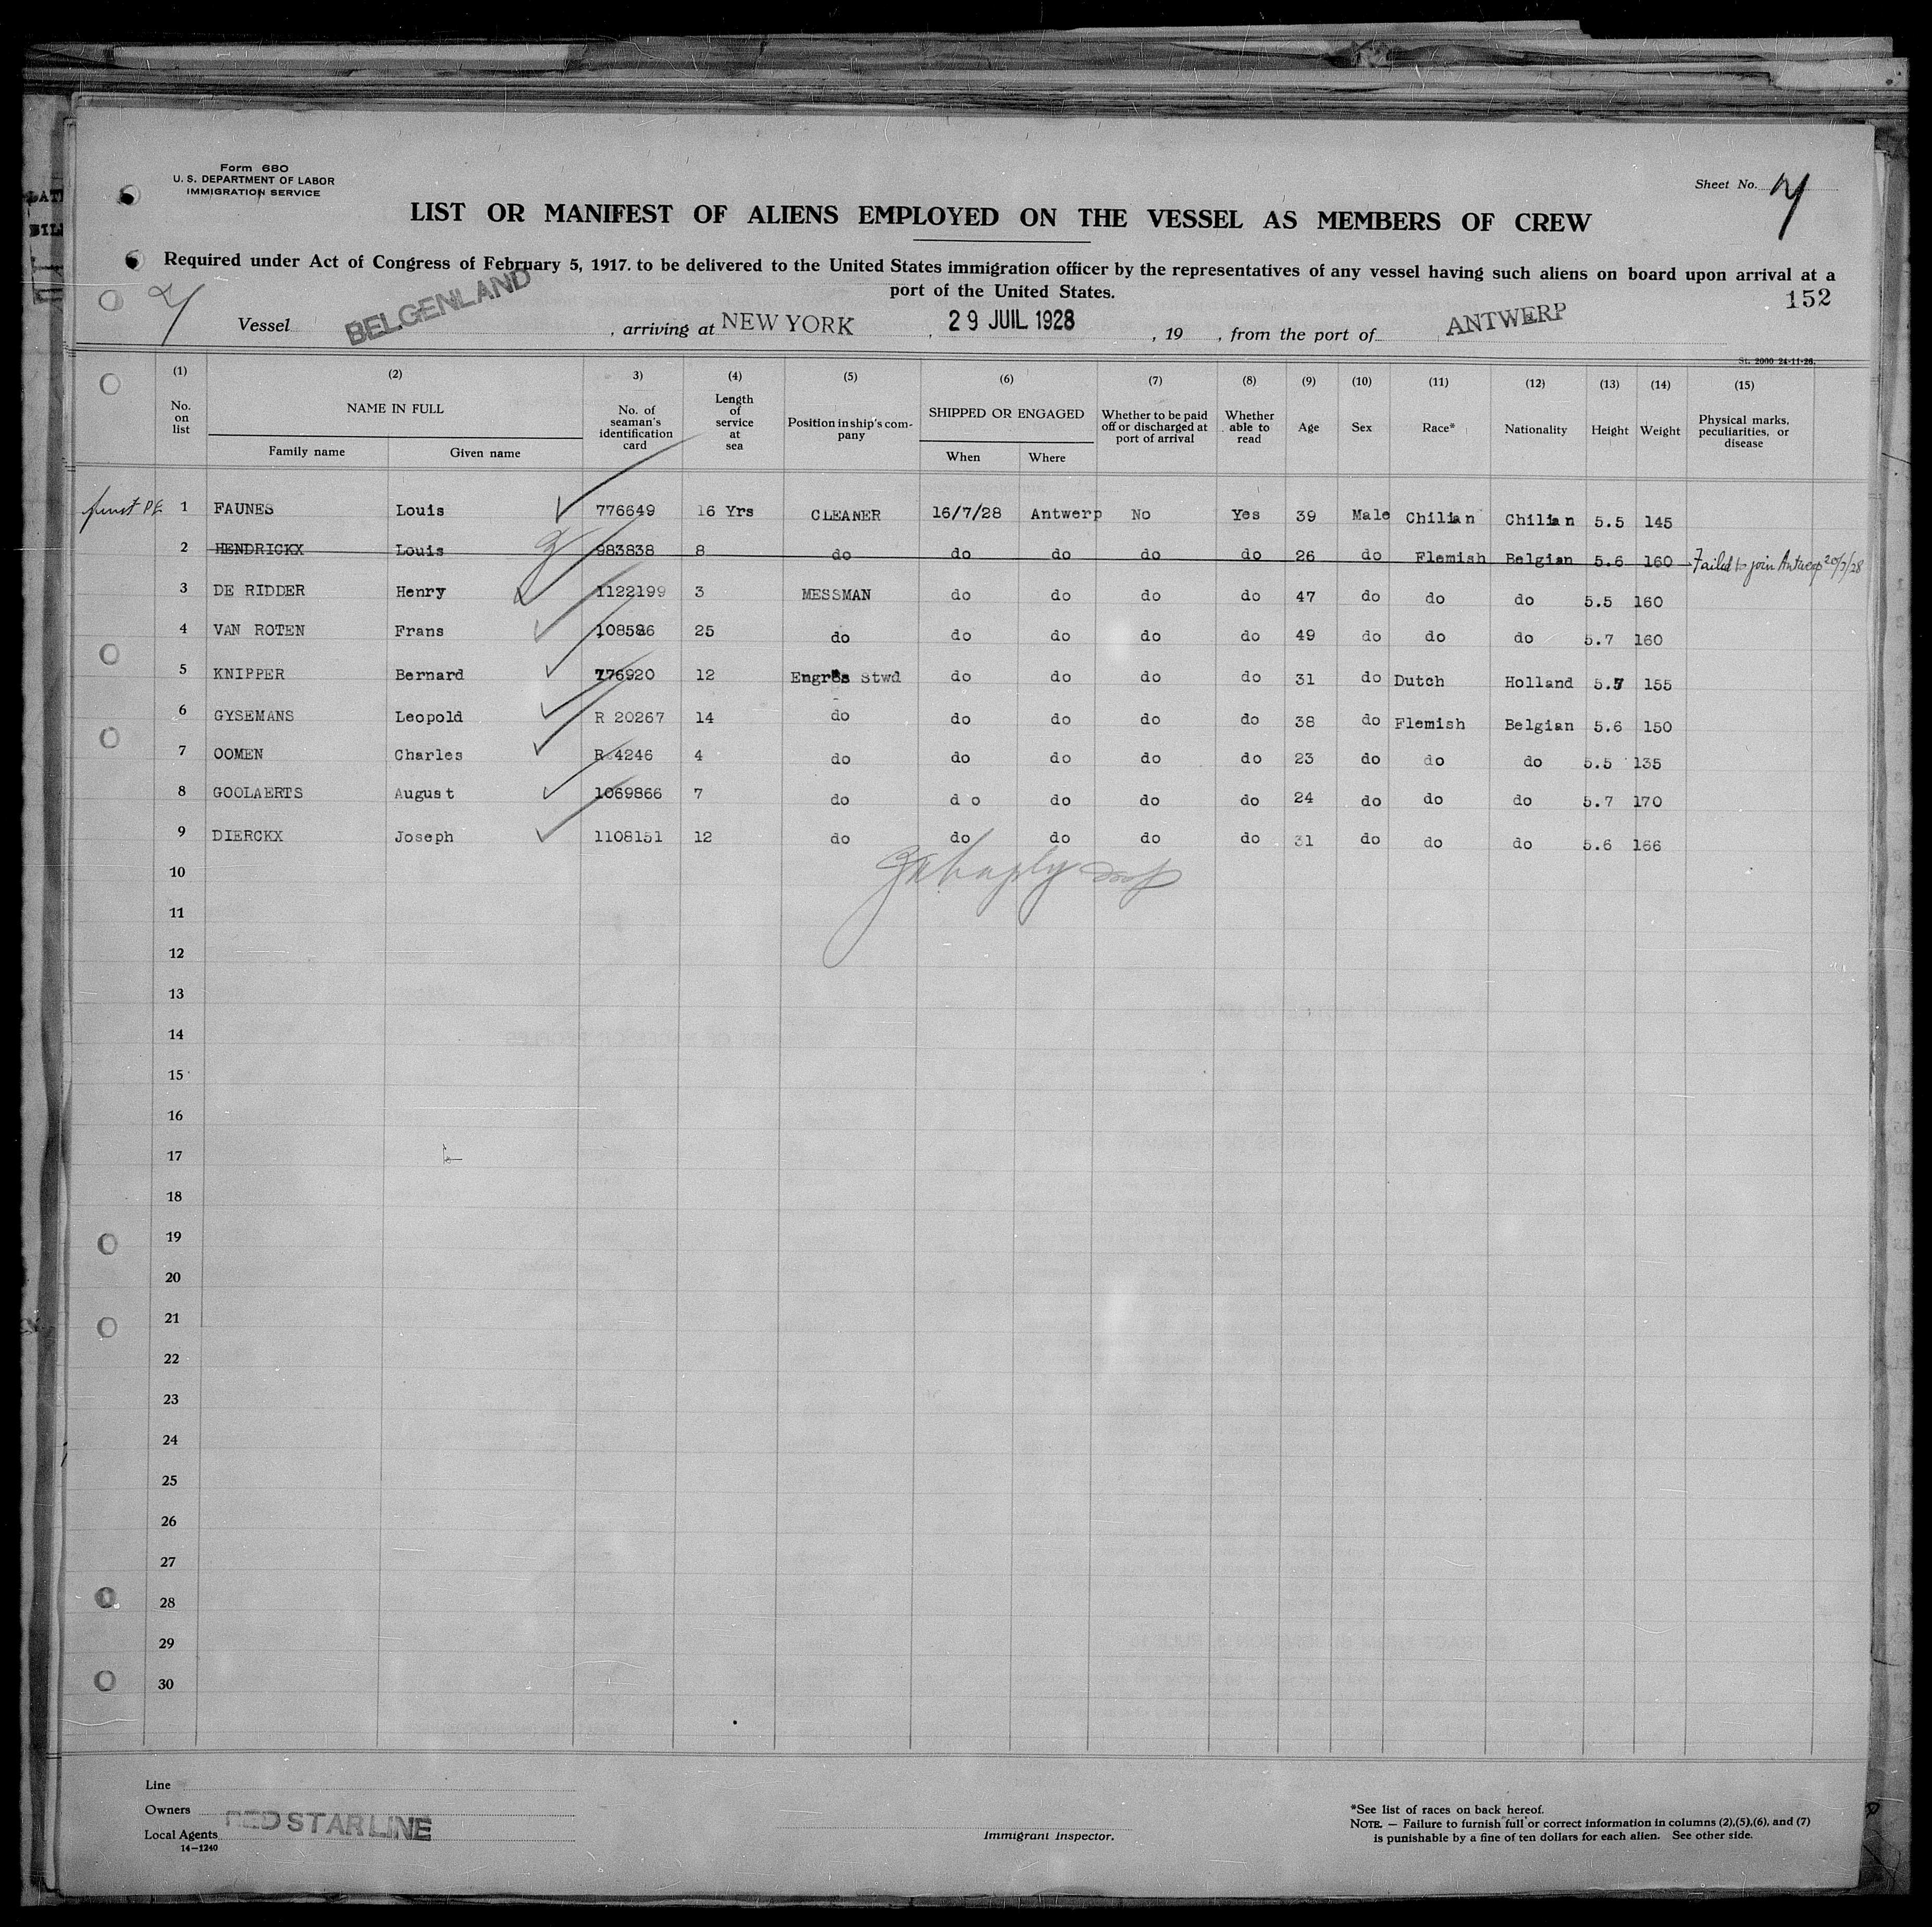 Form 680
U. S. DEPARTMENT OF LABOR
IMMIGRATION SERVICE
Sheet No.
LIST OR MANIFEST OF ALIENS EMPLOYED ON THE VESSEL AS MEMBERS OF CREW
Required under Act of Congress of February 5, 1917. to be delivered to the United States immigration officer by the representatives of any vessel having such aliens on board upon arrival at a
port of the United States.
152
Vessel BELGENLAND, arriving at NEW YORK, 29 JUIL 1928, 19 , from the port of ANTWERP
St. 2000 24-11-26.
(1) (2) 3) (4) (5) (6) (7) (8) (9) (10) (11) (12) (13) (14) (15)
No. on list NAME IN FULL Family name Given name No. of seaman's identification card Length of service at sea Position in ship's company SHIPPED OR ENGAGED When Where Whether to be paid off or discharged at port of arrival Whether able to read Age Sex Race* Nationality Height Weight Physical marks, peculiarities, or disease
1 FAUNES Louis 776649 16 Yrs CLEANER 16/7/28 Antwerp No Yes 39 Male Chilian Chilian 5.5 145
2 HENDRICKX Louis 983838 8 do do do do do 26 do Flemish Belgian 5.6 160 Failed to join Antwerp 20/7/28
3 DE RIDDER Henry 1122199 3 MESSMAN do do do do 47 do do do 5.5 160
4 VAN ROTEN Frans 108586 25 do do do do do 49 do do do 5.7 160
5 KNIPPER Bernard 776920 12 Engrs Stwd do do do do 31 do Dutch Holland 5.7 155
6 GYSEMANS Leopold R 20267 14 do do do do do 38 do Flemish Belgian 5.6 150
7 OOMEN Charles R 4246 4 do do do do do 23 do do do 5.5 135
8 GOOLAERTS August 1069866 7 do d o do do do 24 do do do 5.7 170
9 DIERCKX Joseph 1108151 12 do do do do do 31 do do do 5.6 166
10
11
12
13
14
15
16
17
18
19
20
21
22
23
24
25
26
27
28
29
30
Line
Owners
Local Agents RED STAR LINE
14-1240
Immigrant Inspector.
*See list of races on back hereof.
NOTE. — Failure to furnish full or correct information in columns (2),(5),(6), and (7)
is punishable by a fine of ten dollars for each alien. See other side.